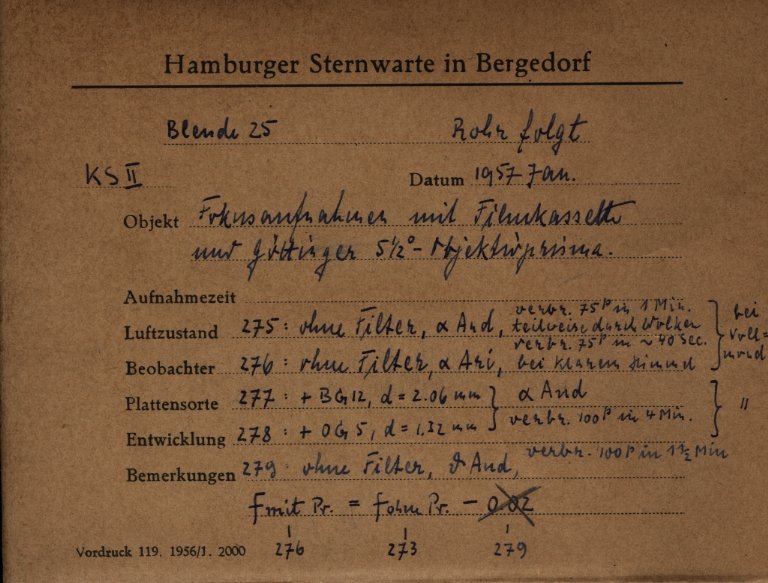 Hamburger Sternwarte in Bergedorf
Blende 25 Rohr folgt
KS II Datum 1957 Jan.
Objekt Fokusaufnahmen mit Filmkassette
und Göttinger 5 1/2° - Objektivprisma.
Aufnahmezeit
verbr. 75P in 1 Min.
Luftzustand 275: ohne Filter, α And, teilweise durch Wolken
verbr. 75P in ~ 40 Sec.
Beobachter 276: ohne Filter, α Ari, bei klarem Himmel
} bei Voll=mond
Plattensorte 277: + BG12, d = 2.06 mm } α And
Entwicklung 278: + OG5, d = 1.32 mm } verbr. 100P in 4 Min. } "
Bemerkungen 279: ohne Filter, ϑ And, verbr. 100P in 1 1/2 Min
f mit Pr. = f ohne Pr. - 0.02
Vordruck 119. 1956/1. 2000 276 273 279